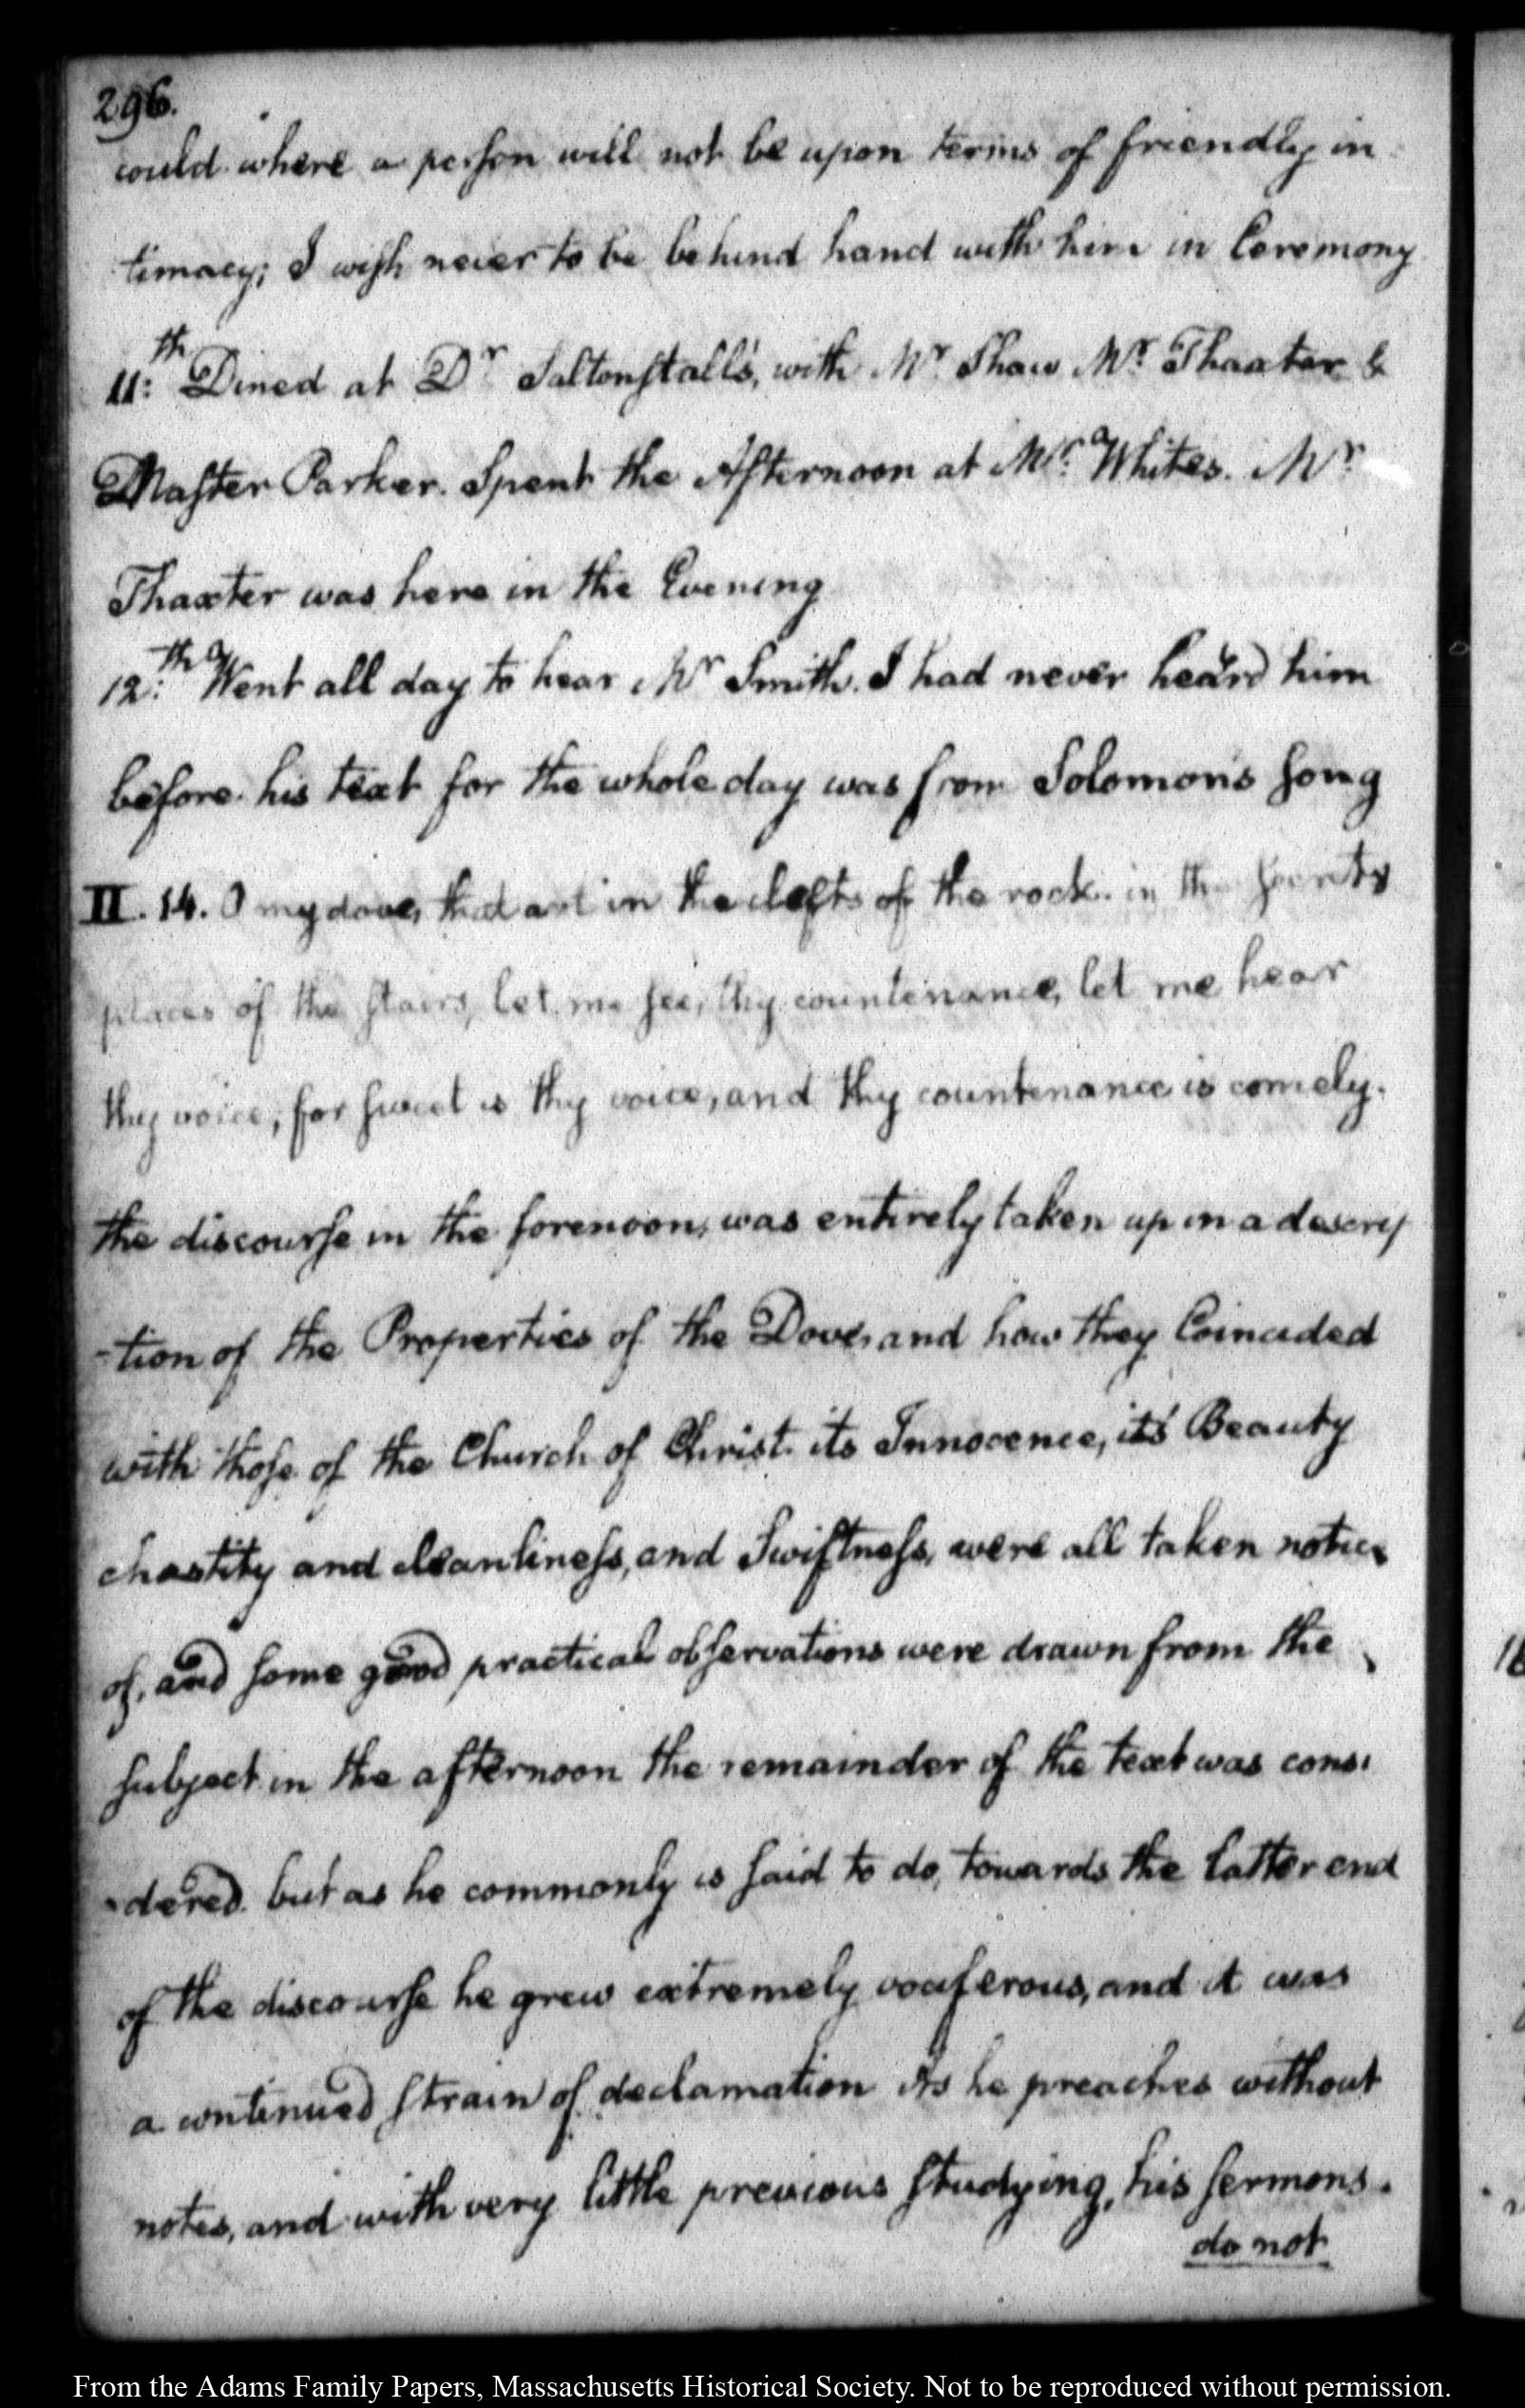 296.
could where a person will not be upon terms of friendly in
timacy; I wish never to be behind hand with him in Ceremony
11:th Dined at Dr Saltonstall's, with Mr Shaw Mr Thaxter &
Master Parker. Spent the Afternoon at Mr. Whites. Mr
Thaxter was here in the Evening
12:th Went all day to hear Mr Smith. I had never heard him
before. his text for the whole day was from Solomon's song
II. 14. O my dove, that art in the clefts of the rock. in the secrets
places of the stairs, let me see, thy countenance, let me hear
thy voice; for sweet is thy voice, and thy countenance is comely.
the discourse in the forenoon, was entirely taken up in a descrip
-tion of the Properties of the Dove, and how they Coincided
with those of the Church of Christ. its Innocence, its Beauty
chastity and cleanliness, and Swiftness, were all taken notice
of, and some good practical observations were drawn from the
subject in the afternoon the remainder of the text was consi
-dered. but as he commonly is said to do, towards the latter end
of the discourse he grew extremely vociferous, and it was
a continued strain of declamation As he preaches without
notes, and with very little previous studying, his sermons.
do not
From the Adams Family Papers, Massachusetts Historical Society. Not to be reproduced without permission.